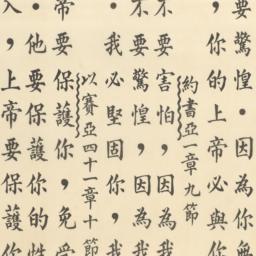 要驚惶·因為你無
，你的上帝必與你
約書亞一章九節
不要害怕，因為我
不要驚惶，因為我
·我必堅固你，我
以賽亞四十一章十節
帝要保護你，免受
·他要保護你的性
入，上帝要保護你